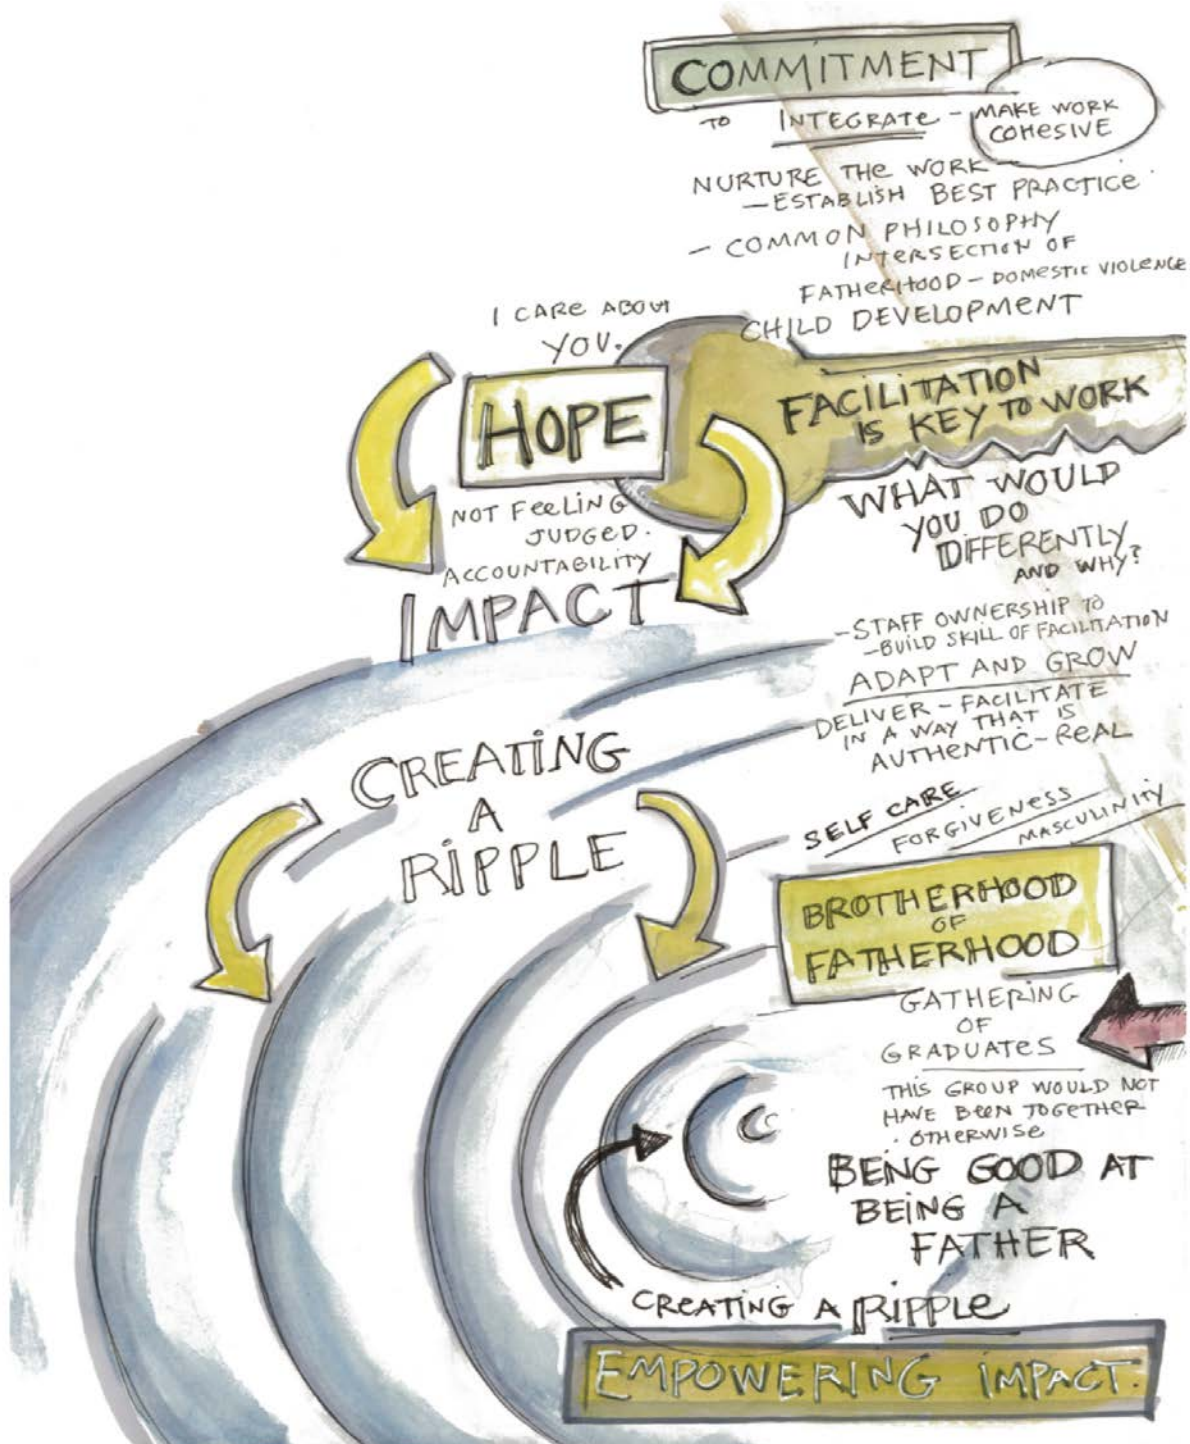 COMMITMENT
TO INTEGRATE - MAKE WORK
COHESIVE
NURTURE THE WORK
- ESTABLISH BEST PRACTICE
- COMMON PHILOSOPHY
INTERSECTION OF
FATHERHOOD - DOMESTIC VIOLENCE
CHILD DEVELOPMENT
I CARE ABOUT
YOU.
HOPE
NOT FEELING
JUDGED.
ACCOUNTABILITY
IMPACT
FACILITATION
IS KEY TO WORK
WHAT WOULD
YOU DO
DIFFERENTLY
AND WHY?
- STAFF OWNERSHIP TO
- BUILD SKILL OF FACILITATION
ADAPT AND GROW
DELIVER - FACILITATE
IN A WAY THAT IS
AUTHENTIC - REAL
CREATING
A
RIPPLE
SELF CARE
FORGIVENESS
MASCULINITY
BROTHERHOOD
OF
FATHERHOOD
GATHERING
OF
GRADUATES
THIS GROUP WOULD NOT
HAVE BEEN TOGETHER
OTHERWISE
BEING GOOD AT
BEING A
FATHER
CREATING A RIPPLE
EMPOWERING IMPACT.